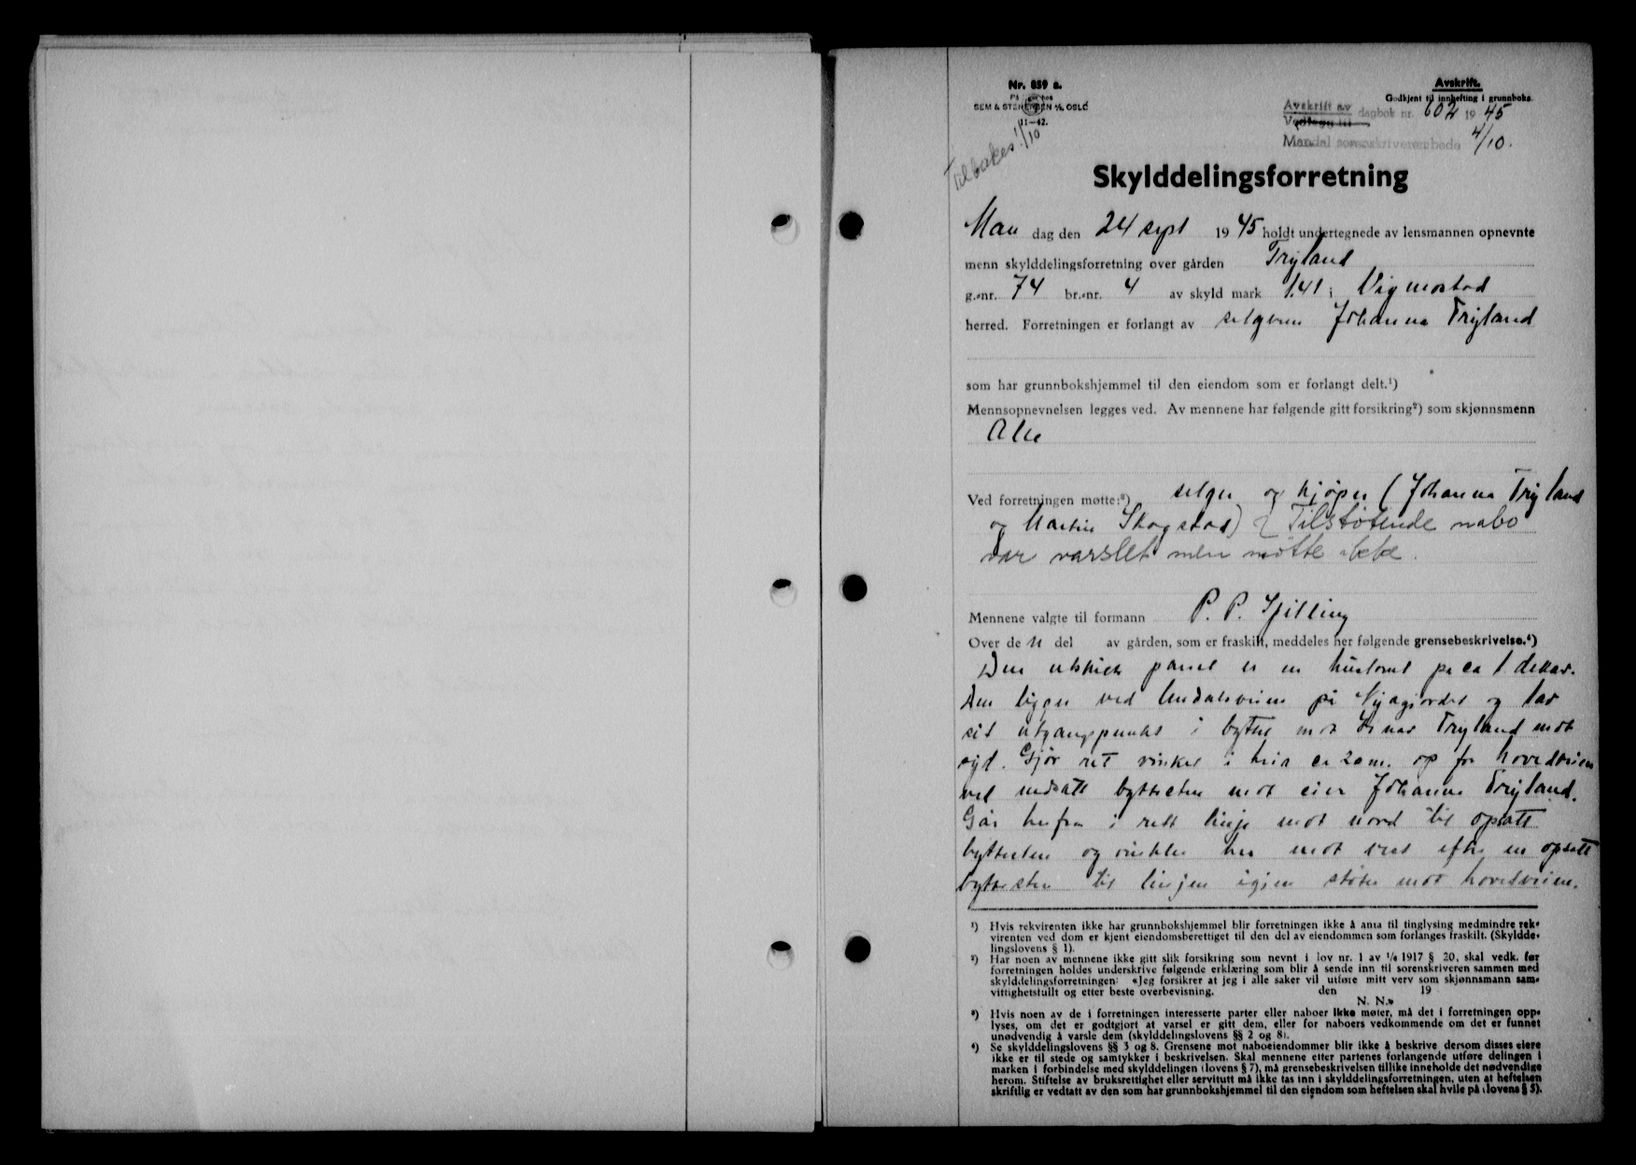 Nr. 859 a.
På lager hos
SEM & STENERSEN A/S OSLO
11—42.
Tilbakes! 1/10
Avskrift.
Godkjent til innhefting i grunnboks
Avskrift av
Vedlegg til dagbok nr. 602 19 45
Mandal sorenskriverembede 4/10.
Skylddelingsforretning
Man dag den 24 sept 19 45 holdt undertegnede av lensmannen opnevnte
menn skylddelingsforretning over gården Tryland
g.-nr. 74 br.-nr. 4 av skyld mark 1.41 i Vigmostad
herred. Forretningen er forlangt av selgeren Johanna Tryland
som har grunnbokshjemmel til den eiendom som er forlangt delt.¹)
Mennsopnevnelsen legges ved. Av mennene har følgende gitt forsikring²) som skjønnsmenn
Alle
Ved forretningen møtte:³) selger og kjøper (Johanna Tryland
og Martin Skogstad) Tilstøtende nabo
var varslet men møtte ikke.
Mennene valgte til formann P. P.
Over de n del av gården, som er fraskilt, meddeles her følgende grensebeskrivelse.⁴)
Den utskilte parsel er en hustomt på ca 1 dekar.
Den ligger ved Undalsveien på og tar
sit utgangspunkt i byttet mot Tryland mot
syd. Gjør ret vinkel i ca 2 om. op for hovedveien
ved nedsatt byttesten mot eier Johanna Tryland.
Går herfra i rett linje mot nord til opsatt
byttesten og vinkler her mot vest efter en opsatt
byttesten til linjen igjen støter mot hovedveien.
¹) Hvis rekvirenten ikke har grunnbokshjemmel blir forretningen ikke å anta til tinglysing medmindre rek-
virenten ved dom er kjent eiendomsberettiget til den del av eiendommen som forlanges fraskilt. (Skyldde-
lingslovens § 1).
²) Har noen av mennene ikke gitt slik forsikring som nevnt i lov nr. 1 av ¹/₆ 1917 § 20, skal vedk. før
forretningen holdes underskrive følgende erklæring som blir å sende inn til sorenskriveren sammen med
skylddelingsforretningen: «Jeg forsikrer at jeg i alle saker vil utføre mitt verv som skjønnsmann sam-
vittighetsfullt og etter beste overbevisning. den 19
N. N.»
³) Hvis noen av de i forretningen interesserte parter eller naboer ikke møter, må det i forretningen opp-
lyses, om det er godtgjort at varsel er gitt dem, eller for naboers vedkommende om det er funnet
unødvendig å varsle dem (skylddelingslovens §§ 2 og 8).
⁴) Se skylddelingslovens §§ 3 og 8. Grensene mot naboeiendommer blir ikke å beskrive dersom disses eiere
ikke er til stede og samtykker i beskrivelsen. Skal mennene etter partenes forlangende utføre delingen i
marken i forbindelse med skylddelingen (lovens § 7), må grensebeskrivelsen tillike inneholde det nødvendige
herom. Stiftelse av bruksrettighet eller servitutt må ikke tas inn i skylddelingsforretningen, uten at heftelsen
skriftlig er vedtatt av den som har grunnbokshjemmel til den eiendom som heftelsen skal hvile på (lovens § 5).